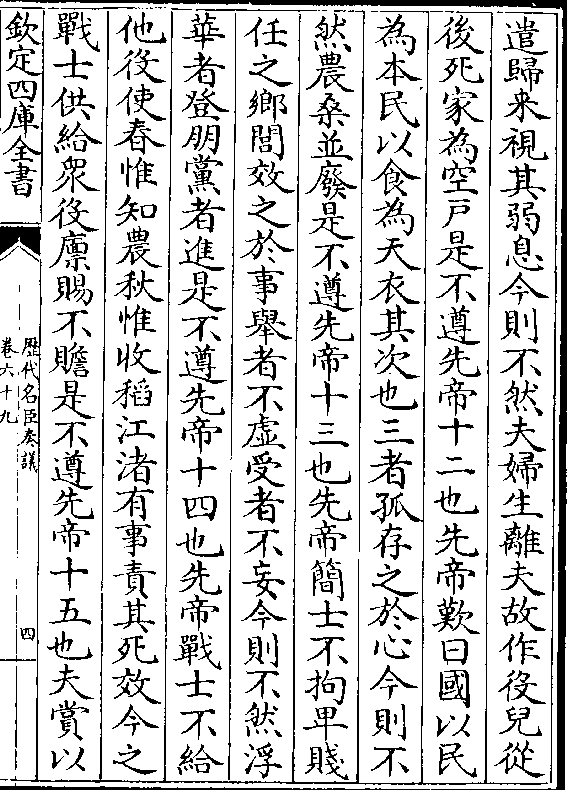 遣歸来視其弱息今則不然夫婦生離夫故作役兒從
後死家為空戸是不遵先帝十二也先帝歎曰國以民
為本民以食為天衣其次也三者孤存之於心今則不
然農桑並廢是不遵先帝十三也先帝簡士不拘卑賤
任之鄉閭效之於事舉者不虛受者不妄今則不然浮
華者登朋黨者進是不遵先帝十四也先帝戰士不給
他役使春惟知農秋惟收稻江渚有事責其死效今之
戰士供給衆役廪賜不贍是不遵先帝十五也夫賞以
欽定四庫全書
歴代名臣奏議
卷六十九
四